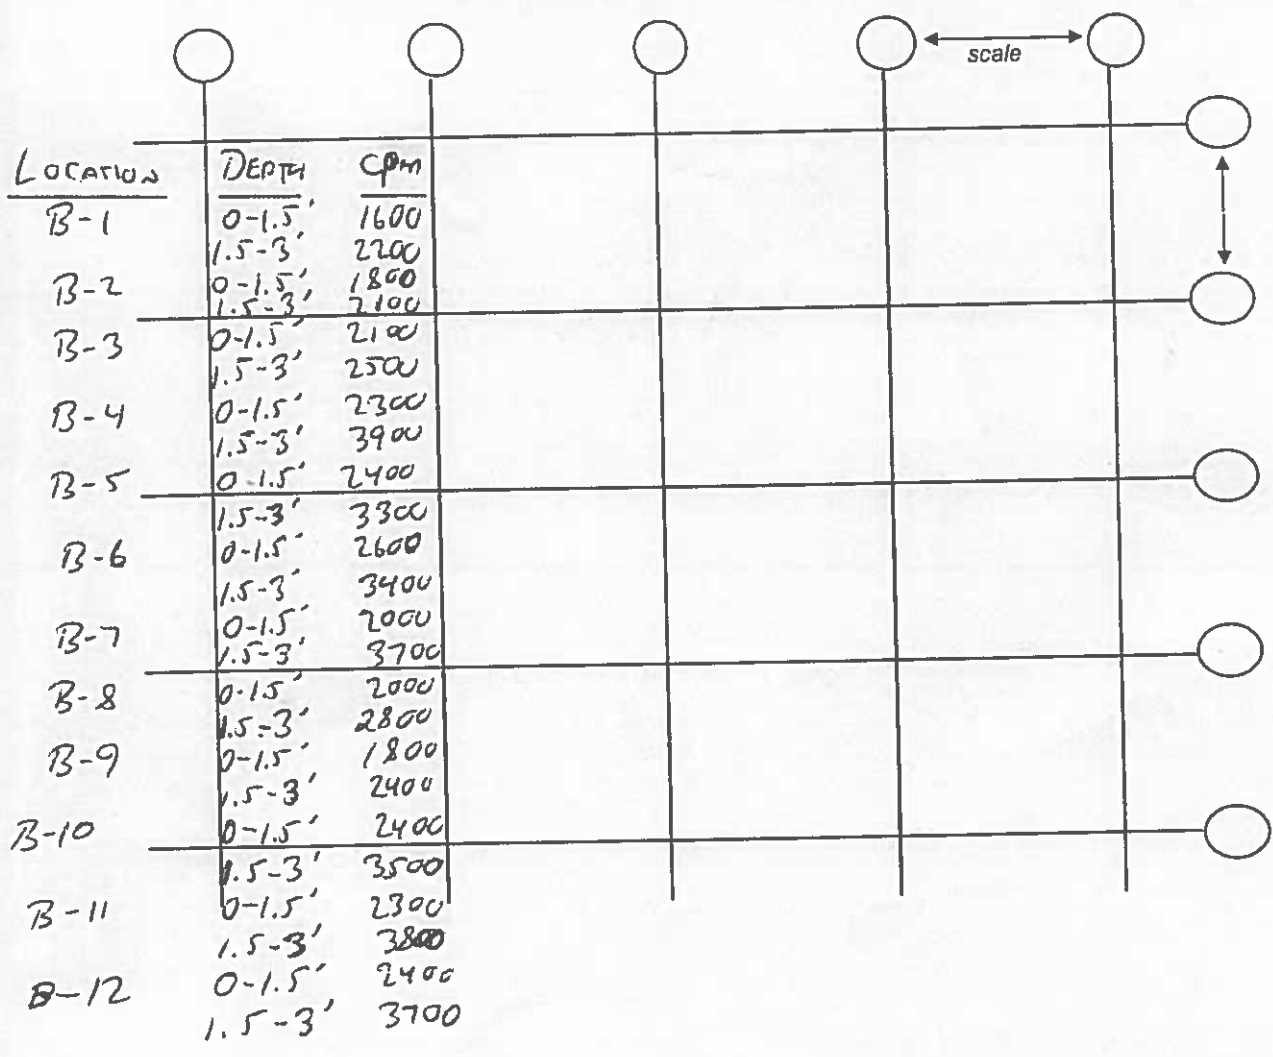 scale
LOCATION DEPTH cpm
B-1 0-1.5' 1600
1.5-3' 2200
B-2 0-1.5' 1800
1.5-3' 2100
B-3 0-1.5' 2100
1.5-3' 2500
B-4 0-1.5' 2300
1.5-3' 3900
B-5 0-1.5' 2400
1.5-3' 3300
B-6 0-1.5' 2600
1.5-3' 3400
B-7 0-1.5' 2000
1.5-3' 3700
B-8 0-1.5' 2000
1.5-3' 2800
B-9 0-1.5' 1800
1.5-3' 2400
B-10 0-1.5' 2400
1.5-3' 3500
B-11 0-1.5' 2300
1.5-3' 3800
B-12 0-1.5' 2400
1.5-3' 3700